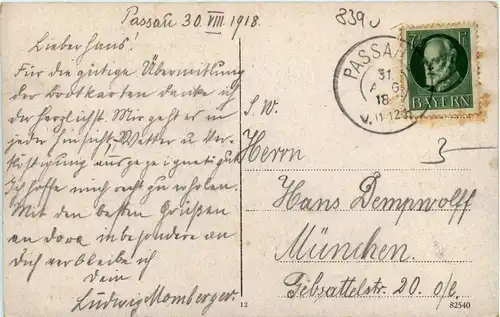 Passau 30. VIII. 1918.
839
Lieber Hans!
Für die gütige Übermittlung
der Brotkarten danke ich
dir herzlichst. Mir geht es in
jeder Hinsicht - Wetter u. Ver-
köstigung ausgezeichnet gut.
Ich hoffe mich recht zu erholen.
Mit den besten Grüßen
an Dora insbesondere an
Dich verbleibe ich
Dein
Ludwig Momberger.
PASSAU
31.
AUG
18
V. 11-12
7½ PF
BAYERN
S. W.
Herrn
3-
Hans Dempwolff
München.
Gebsattelstr. 20. o/e.
12
82540